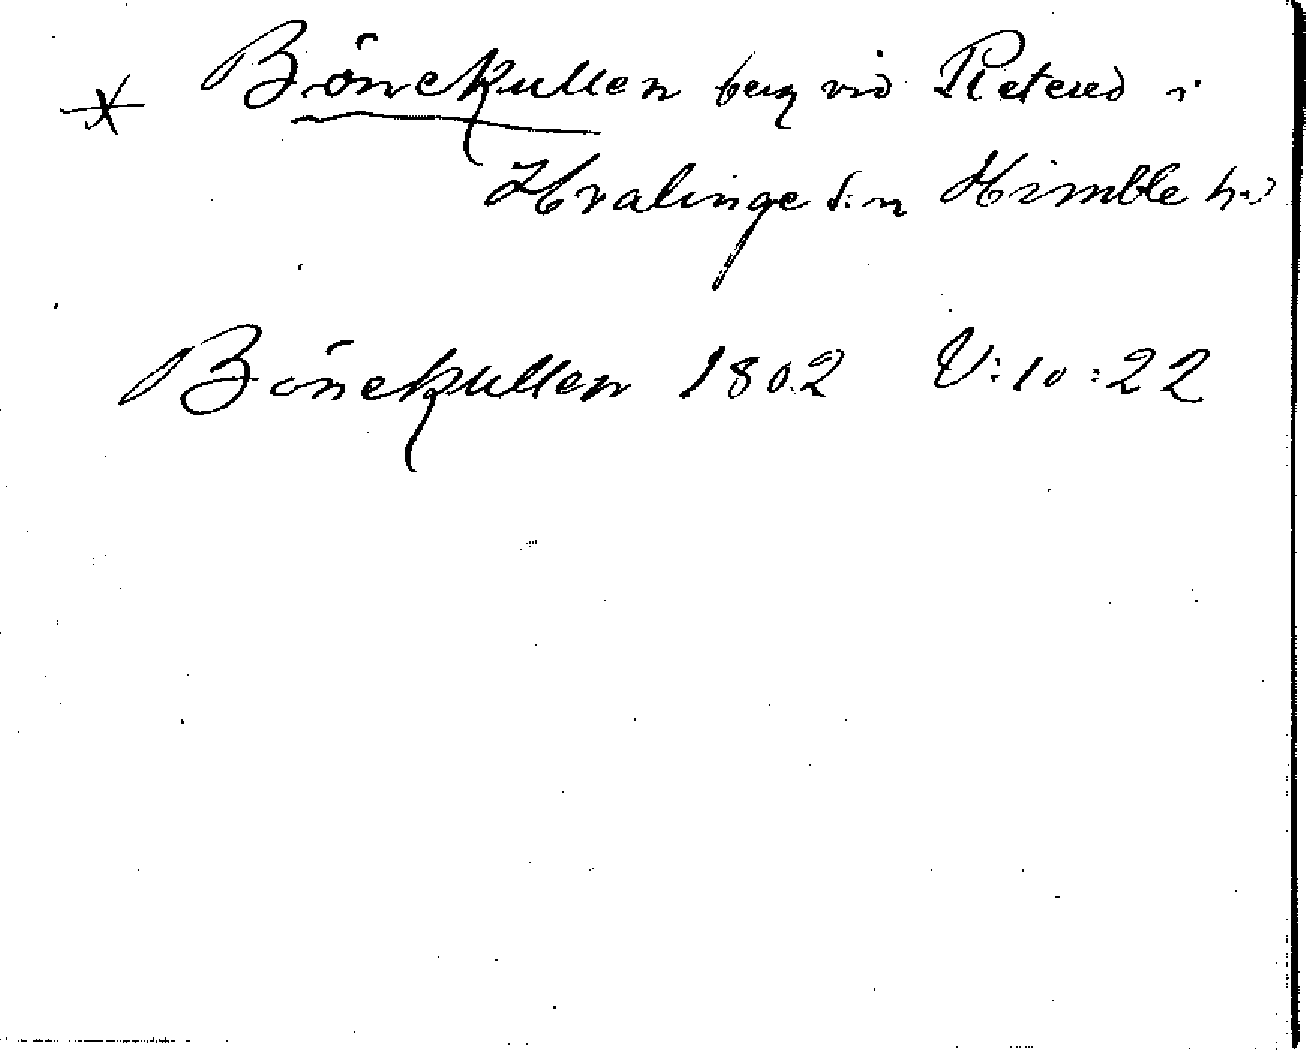 * Bönekullen berg vid Retered i
Hvalinge s:n Himble hd
Bönekullen 1802 V:10:22